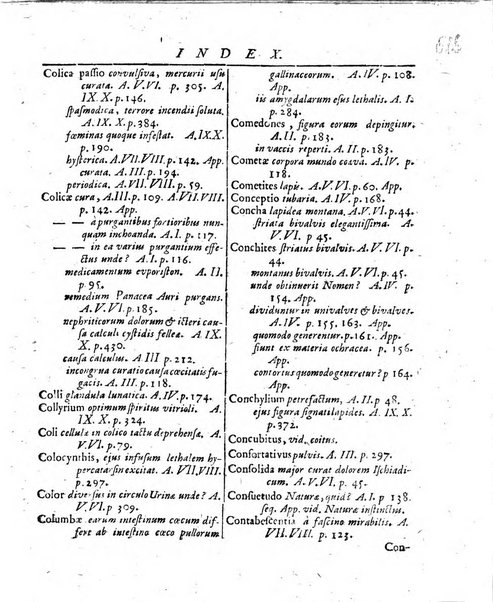 INDEX.
Colica passio convulsiva, mercurii usu
curata. A. V. VI. p. 305. A.
IX. X. p. 146.
spasmodica, terrore incendii soluta.
A. IX. X. p. 384.
fœminas quoque infestat. A. IX. X.
p. 190.
hysterica. A. VII. VIII. p. 142. App.
curata. A. III. p. 194.
periodica. A. VII. VIII. p. 59.
Colicæ cura, A. III. p. 109. A. VII. VIII.
p. 142. App.
— — à purgantibus fortioribus nun-
quam inchoanda. A. I. p. 117.
— — in ea varius purgantium effe-
ctus unde? A. I. p. 116.
medicamentum evporiston. A. II.
p. 95.
remedium Panacea Auri purgans.
A. V. VI. p. 185.
nephriticorum dolorum & icteri cau-
sa calculi cystidis felleæ. A. IX.
X. p. 430.
causa calculus. A. III p. 212.
incongrua curatio causa cœcitatis fu-
gacis. A. III. p. 118.
Colli glandula lunatica. A. IV. p. 174.
Collyrium optimum spiritus vitrioli. A.
IX. X. p. 324.
Coli cellulæ in colico tactu deprehensæ. A.
V. VI. p. 79.
Colocynthis, ejus infusum lethalem hy-
percatarsin excitat. A. VII. VIII.
p. 297.
Color diversus in circulo Urinæ unde? A.
V. VI. p 309.
Columbæ earum intestinum cœcum dif-
fert ab intestino cœco pullorum
gallinaceorum. A. IV. p. 108.
App.
iis amygdalarum esus lethalis. A. I.
p. 284.
Comedones, figura eorum depingitur.
A. II. p. 183.
in vaccis reperti. A. II. p. 183.
Cometæ corpora mundo coæva. A. IV. p.
118.
Cometites lapis. A. V. VI. p. 60. App.
Conceptio tubaria. A. IV. p. 168.
Concha lapidea montana. A. V. VI. p. 44.
striata bivalvis elegantissima. A.
V. VI. p 45.
Conchites striatus bivalvis. A. V. VI. p.
44.
montanus bivalvis. A. V. VI. p. 45.
unde obtinuerit Nomen? A. IV. p.
154. App.
dividuntur in univalves & bivalves.
A. IV. p. 155. 163. App.
quomodo generentur. p. 161. App.
fiunt ex materia ochracea. p. 156.
App.
contortus quomodo generetur? p 164.
App.
Conchylium petrefactum, A. I. p. 48.
ejus figura signati lapides. A. IX. X.
p. 372.
Concubitus, vid. coitus.
Confortativus pulvis. A. III. p. 297.
Consolida major curat dolorem Ischiadi-
cum. A. V. VI. p. 45.
Consuetudo Naturæ, quid? A. I. p 138.
seq. App. vid. Naturæ instinctus.
Contabescentia à fascino mirabilis. A.
VII. VIII. p. 123.
Con-